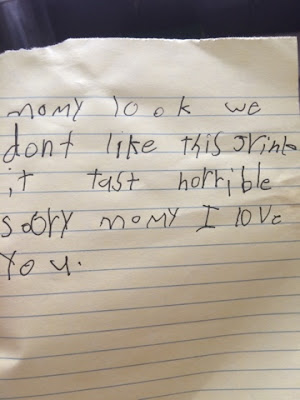 momy look we
dont like this drink
it tast horrible
soory momy I love
you.